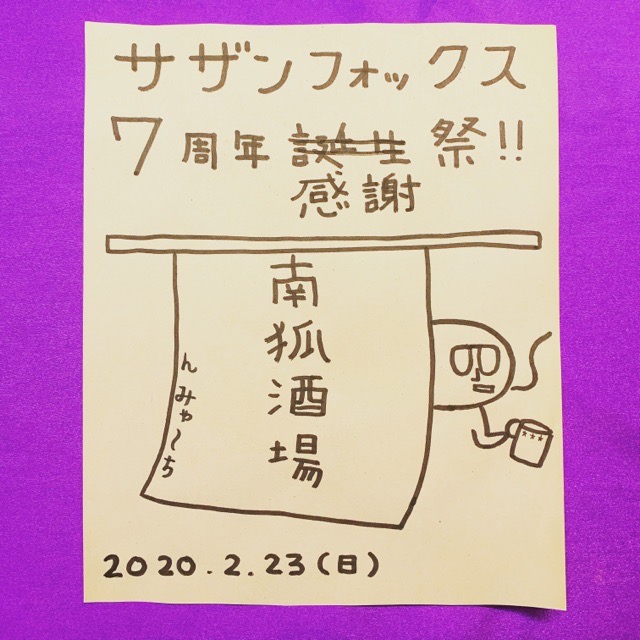 サザンフォックス
7周年誕生祭!!
感謝
南狐酒場
んみゃ〜ち
2020.2.23(日)